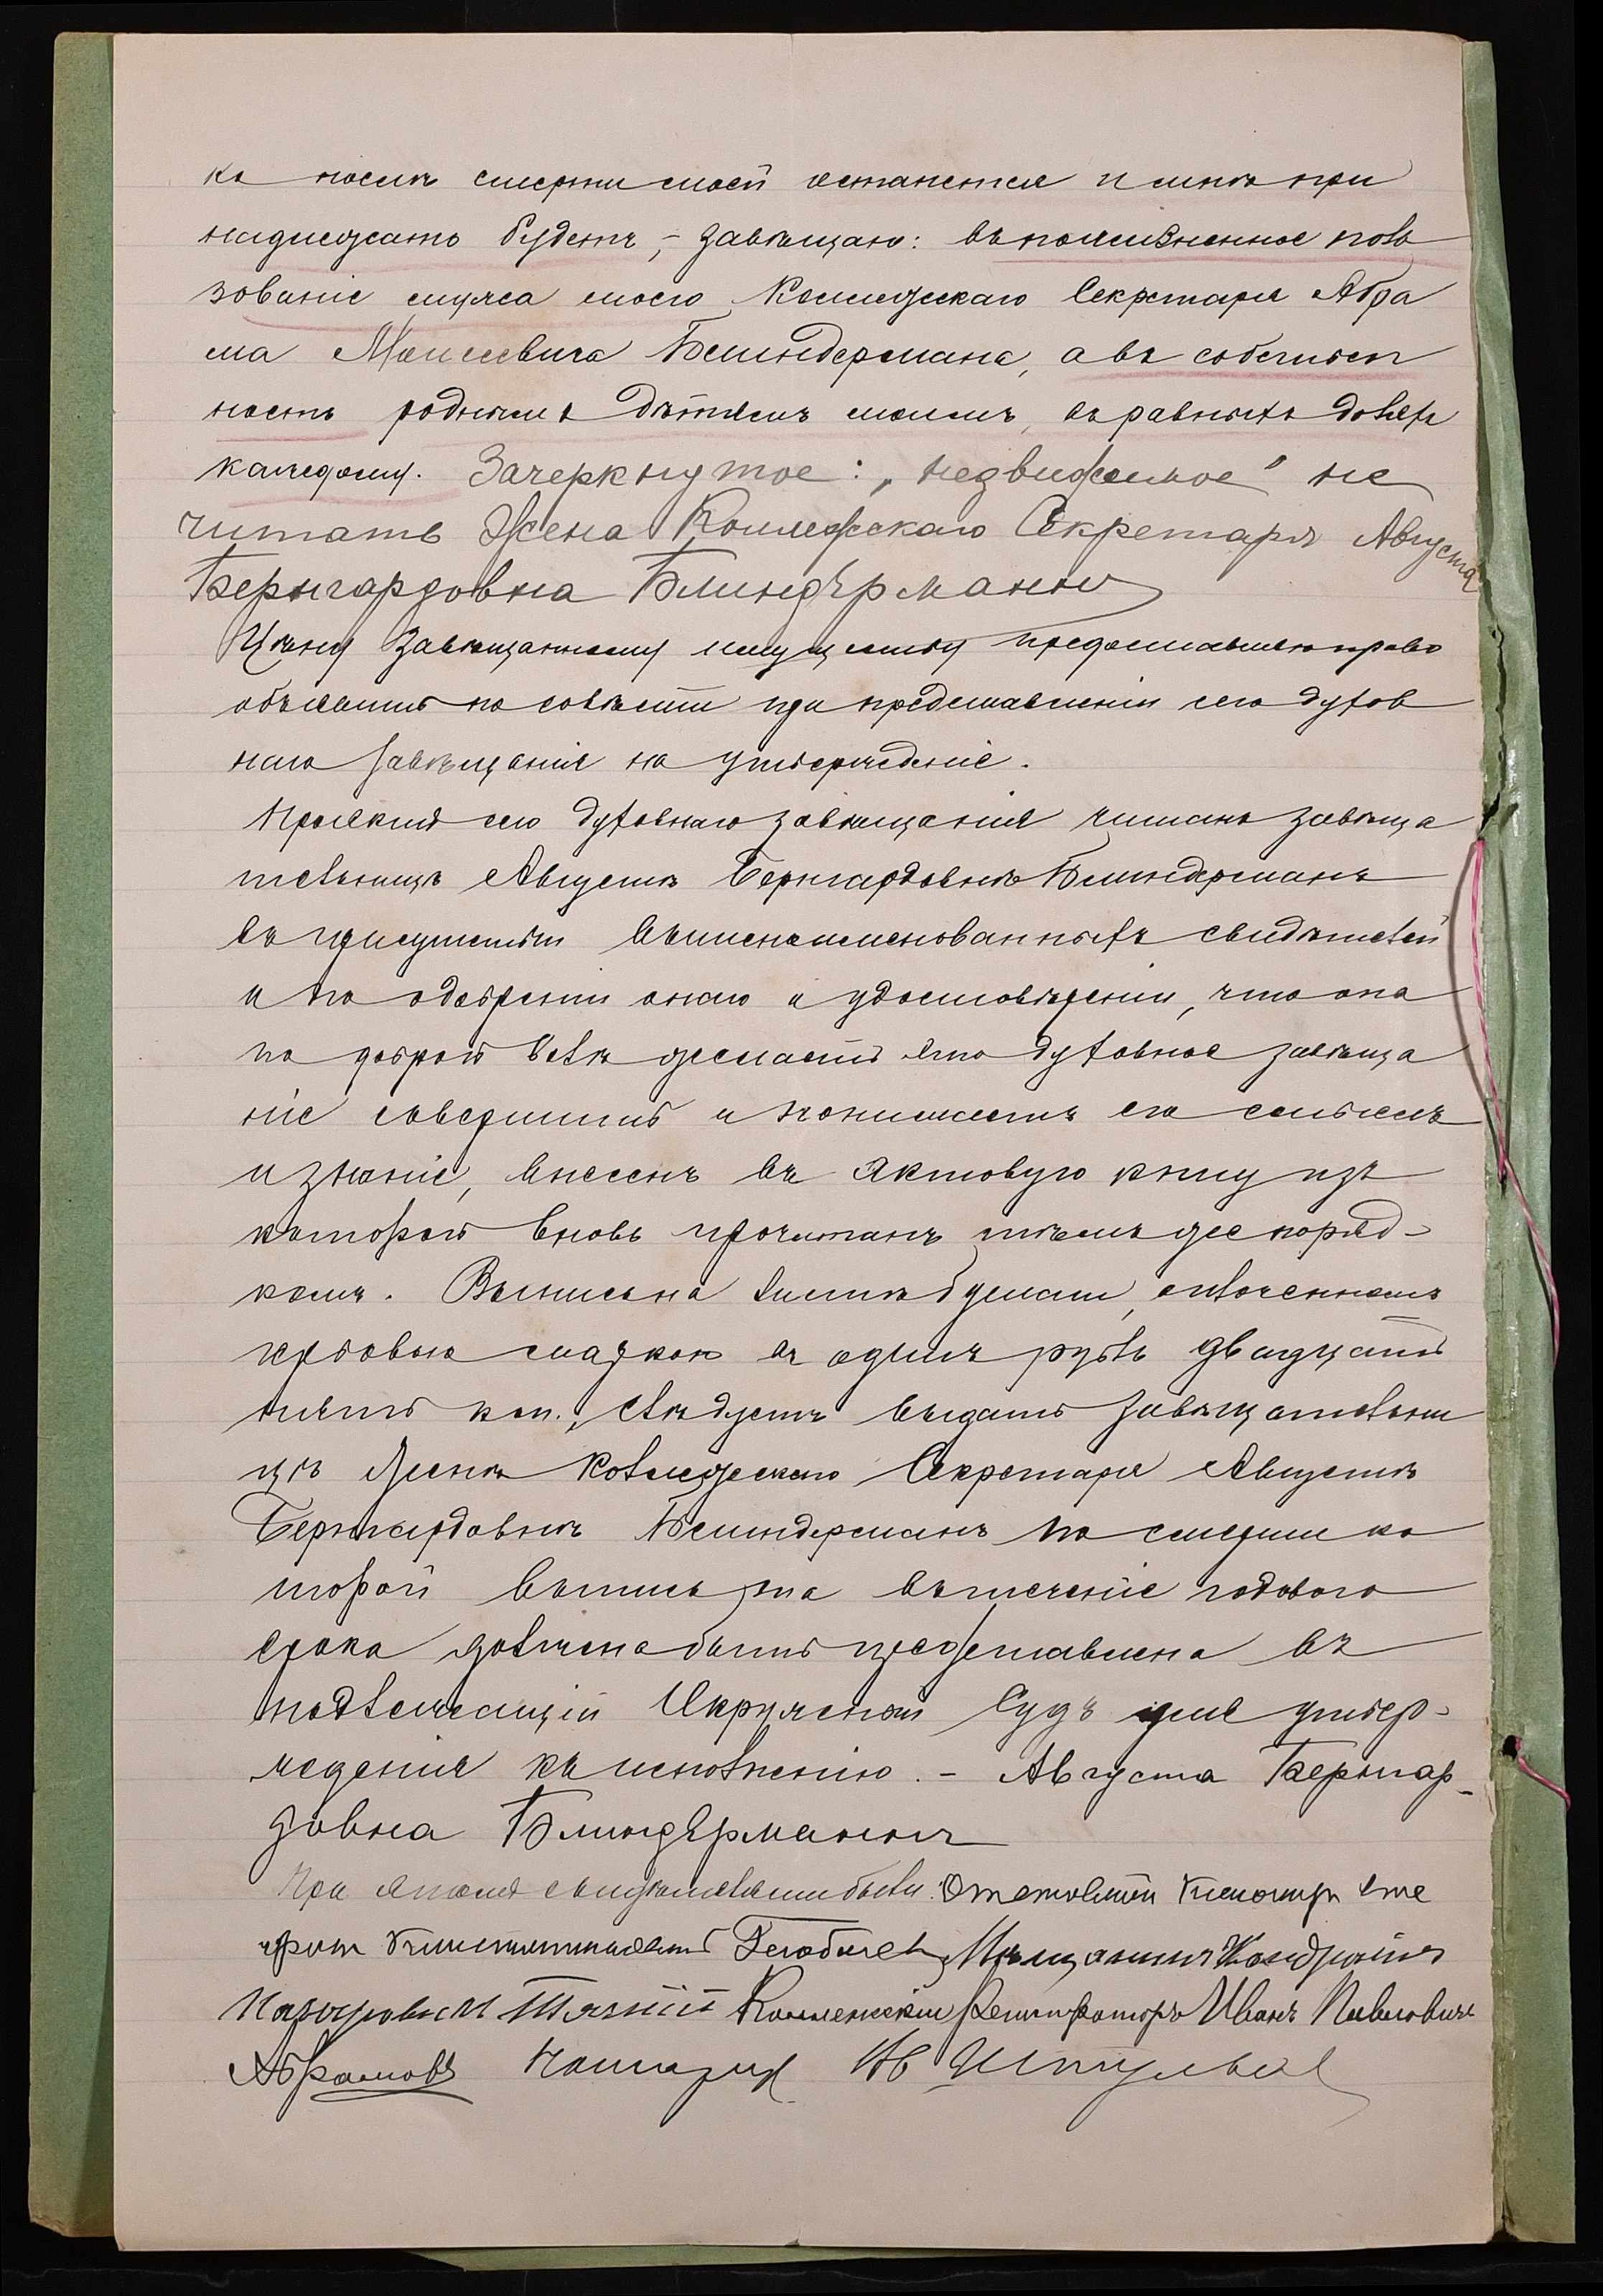 ко послѣ смерти моей останется и мнѣ при
надлежать будетъ, – завѣщаю: въ пожизненное поль
зованіе мужа моего Коллежскаго Секретаря Абра
ма Моисеевича Блиндермана, а въ собствен
ность роднымъ дѣтямъ моимъ, въ равныхъ доляхъ
каждому. Зачеркнутое: „недвижимое" не
читать Жена Коллежскаго Секретаря Августа
Бернгардовна Блиндерманъ
Цѣну завѣщанному имуществу предоставляю право
объявить по совѣсти при представленіи сего духов
наго завѣщанія на утвержденіе.
Проектъ сего духовнаго завѣщанія читанъ завѣща
тельницѣ Августѣ Бернгардовнѣ Блиндерманъ
въ присутствіи вышенаименованныхъ свидѣтелей
и по одобреніи онаго и удостовѣреніи, что она
по доброй волѣ желаетъ это духовное завѣща
ніе совершить и понимаетъ его смыслъ
и значеніе, внесенъ въ актовую книгу изъ
которой вновь прочитанъ тѣмъ же поряд-
комъ. Выпись на листѣ бумаги, оплоченномъ
гербовою маркою въ одинъ рубль двадцать
пять коп., слѣдуетъ выдать завѣщательни
цѣ Женѣ Коллежскаго Секретаря Августѣ
Бернгардовнѣ Блиндерманъ по смерти ко
торой выпись эта въ теченіе годового
срока должна быть представлена въ
подлежащій Окружный Судъ для утвер-
жденія къ исполненію. – Августа Бернгар-
довна Блиндерманъ
При этомъ свидѣтелями были:
Мѣщанинъ Кондратій
Коллежскій Регистраторъ Иванъ Павловичъ
Абрамовъ Нотаріусъ